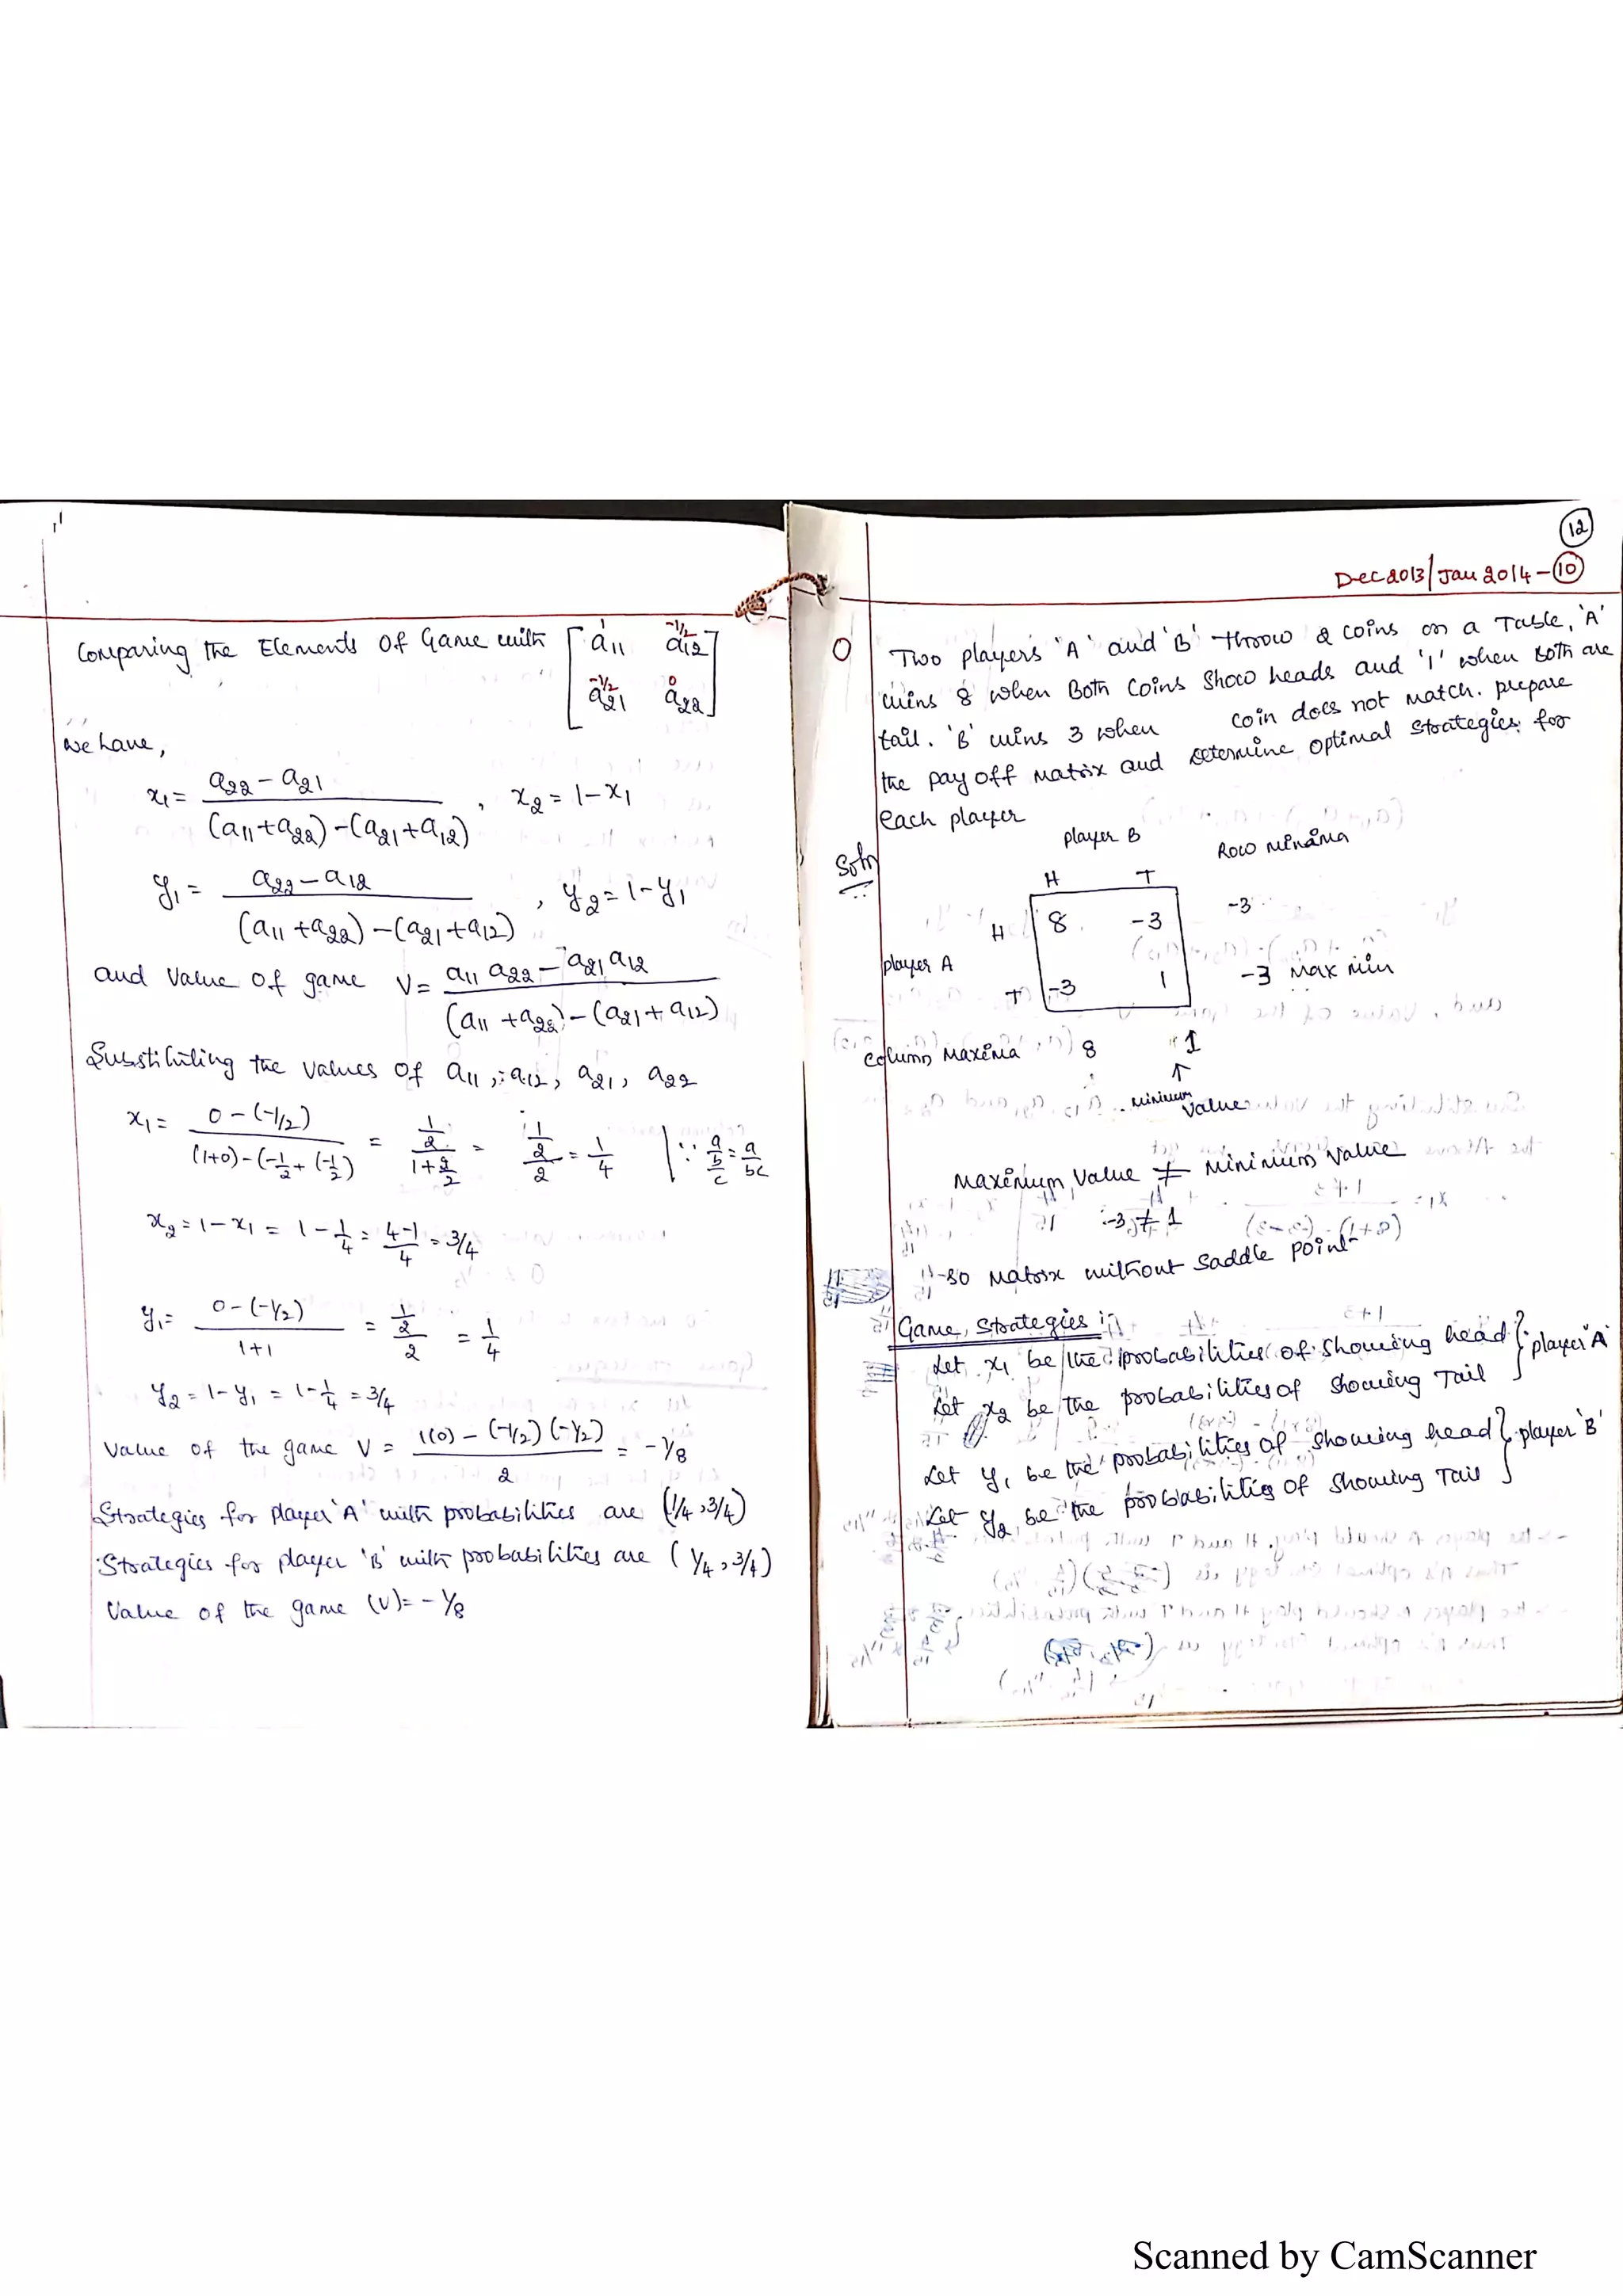 Comparing the Elements Of Game with [ a11 a12
1 -1/2
a21 a22 ]
-1/2 0
We have,
x1 = a22 - a21 / (a11+a22) - (a21+a12) , x2 = 1-x1
y1 = a22 - a12 / (a11+a22) - (a21+a12) , y2 = 1-y1
and Value of game V = a11 a22 - a21 a12 / (a11+a22) - (a21+a12)
Substituting the values of a11, a12, a21, a22
x1 = 0-(-1/2) / (1+0)-(-1/2+(-1/2) = 1/2 / 1+2/2 = 1/2 / 2 = 1/4 | ∵ a/b/c = a/bc
x2 = 1-x1 = 1-1/4 = 4-1/4 = 3/4
y1 = 0-(-1/2) / 1+1 = 1/2 / 2 = 1/4
y2 = 1-y1 = 1-1/4 = 3/4
Value of the game V = 1(0) - (-1/2)(-1/2) / 2 = -1/8
Strategies for player 'A' with probabilities are (1/4, 3/4)
Strategies for player 'B' with probabilities are (1/4, 3/4)
Value of the game (V) = -1/8
12
Dec 2013/Jan 2014 - 10
O Two players 'A' and 'B' throw 2 coins on a Table, 'A'
wins 8 when Both coins show heads and '1' when Both are
tail. 'B' wins 3 when coin does not match. prepare
the pay off matrix and determine optimal strategies for
each player
Soln
player B Row minima
H T
H 8 -3 -3
player A
T -3 1 -3 Max min
Column Maxima 8 1
↑
minimum
value
Maximum Value ≠ Minimum Value
-3 ≠ 1
so Matrix without saddle point
Game Strategies :
Let x1 be the probabilities of showing head } player 'A'
Let x2 be the probabilities of showing Tail
Let y1 be the probabilities of showing head } player 'B'
Let y2 be the probabilities of showing Tail
Scanned by CamScanner